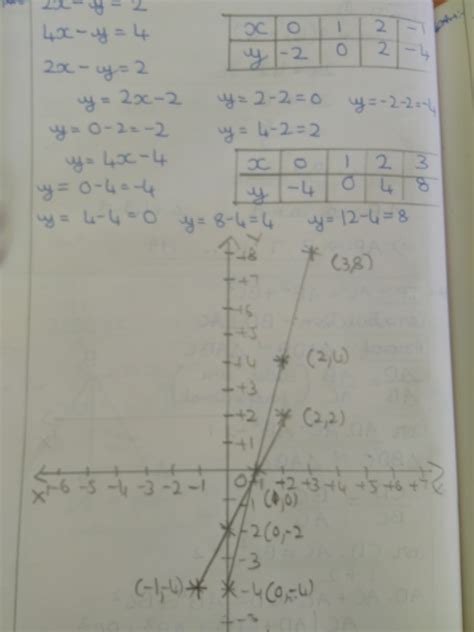 2x - y = 2
4x - y = 4
x 0 1 2 -1
y -2 0 2 -4
2x - y = 2
y = 2x - 2 y = 2 - 2 = 0 y = -2 - 2 = -4
y = 0 - 2 = -2 y = 4 - 2 = 2
y = 4x - 4
x 0 1 2 3
y -4 0 4 8
y = 0 - 4 = -4
y = 4 - 4 = 0 y = 8 - 4 = 4 y = 12 - 4 = 8
Y
+8 (3,8)
+7
+6
+5
+4 (2,4)
+3
+2 (2,2)
+1
X' -6 -5 -4 -3 -2 -1 0 +1 +2 +3 +4 +5 +6 +7 X
-1 (1,0)
-2 (0,-2
-3
(-1,-4) -4 (0,-4)